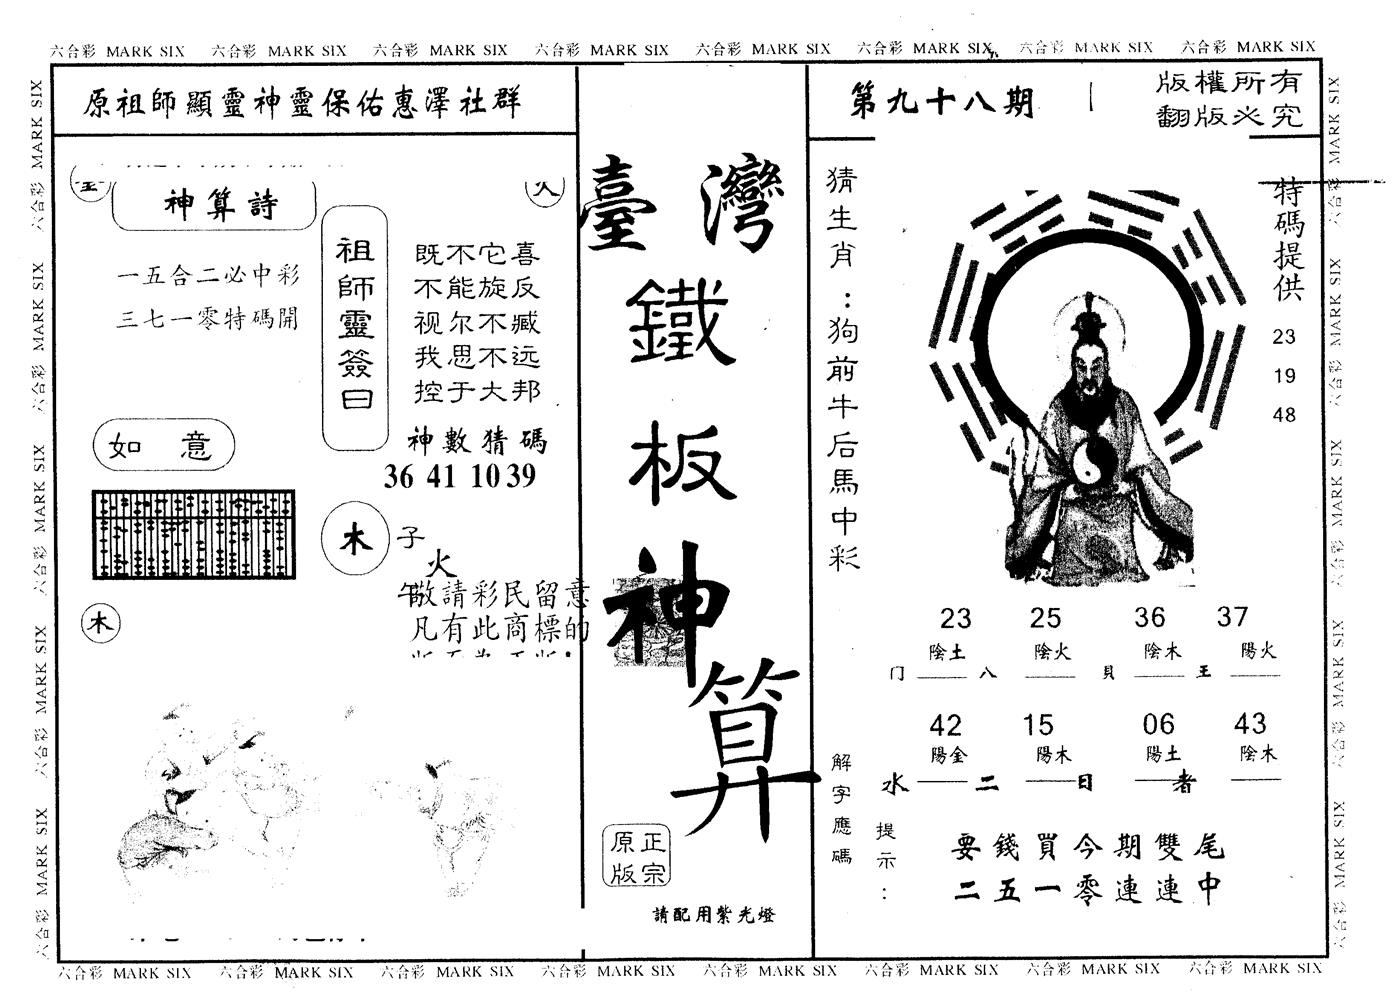 六合彩 MARK SIX 六合彩 MARK SIX 六合彩 MARK SIX 六合彩 MARK SIX 六合彩 MARK SIX 六合彩 MARK SIX 六合彩 MARK SIX 六合彩 MARK SIX
原祖師顯靈神靈保佑惠澤社群
火
神算詩
一五合二必中彩
三七一零特碼開
祖師靈簽曰
既不它喜
不能旋反
视尔不臧
我思不远
控于大邦
神數猜碼
36 41 10 39
如 意
木
子
火
午
木
敬請彩民留意
凡有此商標的
臺灣
鐵
板
神
算
正宗
原版
請配用紫光燈
第九十八期
版權所有
翻版必究
猜生肖：狗前牛后馬中彩
特碼提供
23
19
48
23 25 36 37
陰土 陰火 陰木 陽火
门 八 貝 王
42 15 06 43
陽金 陽木 陽土 陰木
水 二 日 者
解字應碼
提示：
要錢買今期雙尾
二五一零連連中
六合彩 MARK SIX 六合彩 MARK SIX 六合彩 MARK SIX 六合彩 MARK SIX 六合彩 MARK SIX
六合彩 MARK SIX 六合彩 MARK SIX 六合彩 MARK SIX 六合彩 MARK SIX 六合彩 MARK SIX
六合彩 MARK SIX 六合彩 MARK SIX 六合彩 MARK SIX 六合彩 MARK SIX 六合彩 MARK SIX 六合彩 MARK SIX 六合彩 MARK SIX 六合彩 MARK SIX